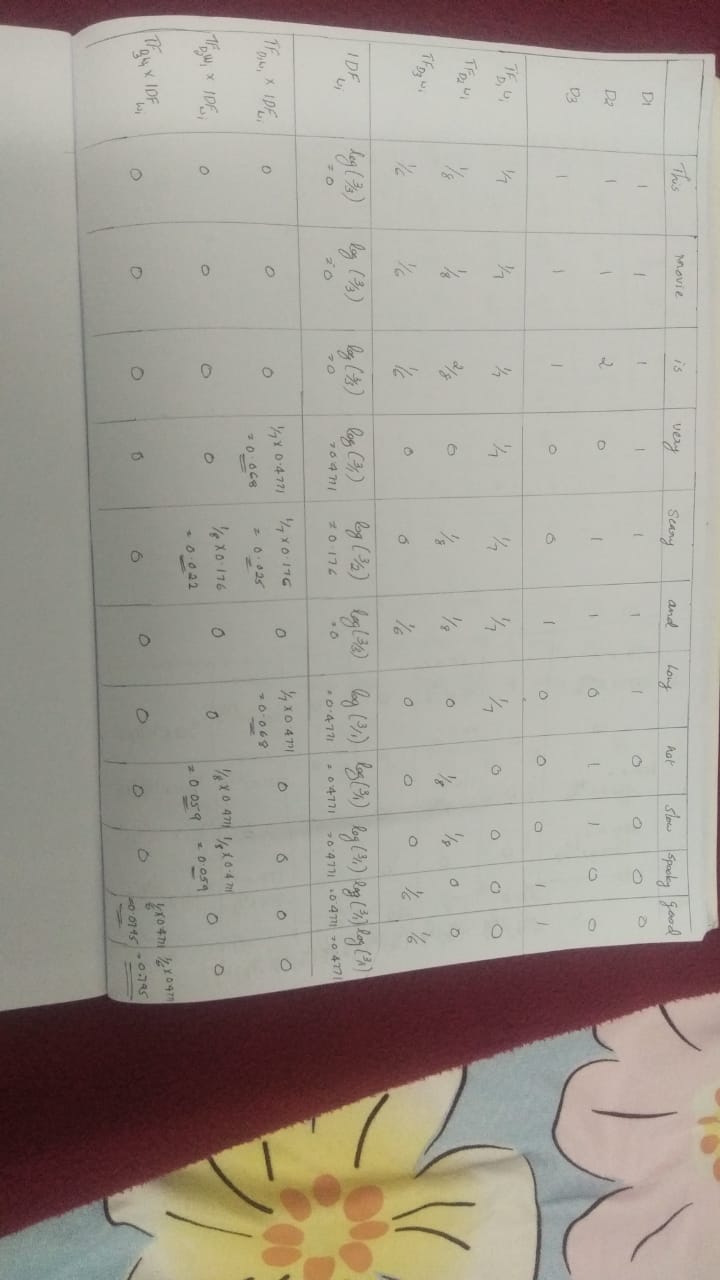 This Movie is very Scary and Long not slow spooky good
D1 1 1 1 1 1 1 1 0 0 0 0
D2 1 1 2 0 1 1 0 1 1 0 0
D3 1 1 1 0 0 1 0 0 0 1 1
TF D1 wi 1/7 1/7 1/7 1/7 1/7 1/7 1/7 0 0 0 0
TF D2 wi 1/8 1/8 2/8 0 1/8 1/8 0 1/8 1/8 0 0
TF D3 wi 1/6 1/6 1/6 0 0 1/6 0 0 0 1/6 1/6
IDF wi log(3/3) log(3/3) log(3/3) log(3/1) log(3/2) log(3/3) log(3/1) log(3/1) log(3/1) log(3/1) log(3/1)
=0 =0 =0 =0.4771 =0.176 =0 =0.4771 =0.4771 =0.4771 =0.4771 =0.4771
TF D1 wi × IDF wi 0 0 0 1/7 × 0.4771 1/7 × 0.176 0 1/7 × 0.4771 0 0 0 0
=0.068 =0.025 =0.068
TF D2 wi × IDF wi 0 0 0 0 1/8 × 0.176 0 0 1/8 × 0.4771 1/8 × 0.4771 0 0
=0.022 =0.059 =0.059
TF D3 wi × IDF wi 0 0 0 0 0 0 0 0 0 1/6 × 0.4771 1/6 × 0.4771
=0.0795 =0.795